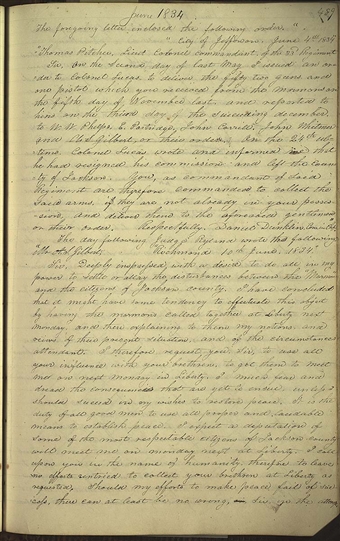 June 1834 489
The foregoing letter enclosed the following order. "
"City of Jefferson June 9th 1834
"Thomas Pitcher, Lieut Colonel commandant of the 33 Regiment
Sir, On the second day of last May I issued an or-
der to Colonel Lucas to deliver the fifty two guns and
one pistol which you received from the Mormons on
the fifth day of November last, and reported to
him on the third day of the succeeding december,
to W. W. Phelps, E. Partridge, John Corrill, John Whitmer
and A. S. Gilbert, or their order. On the 24th ins-
tant Colonel Lucas wrote and informed me that
he had resigned his commission and left the Coun-
ty of Jackson. You, as commandant of said
Regiment are therefore commanded to collect the
said arms, if they are not already in your posses-
sion, and deliver them to the aforesaid gentlemen
or their order. Respectfully, Daniel Dunklin,
The day following Judge Ryland wrote the following
"Mr. A. S. Gilbert, Richmond 10th June, 1834."
Sir, Deeply impressed with a desire to do all in my
power to settle or allay the disturbances between the Mormons
and the citizens of Jackson county, I have concluded
that it might have some tendency to effectuate this object
by having the mormons called together at Liberty next
Monday, and there explaining to them my notions and
views of their present situation, and of the circumstances
attendant. I therefore request you, Sir, to use all
your influence with your brethren, to get them to meet
me on next Monday in Liberty. I much fear and
dread the consequences that are yet to ensue, unless I
should succeed in my wishes to restore peace. It is the
duty of all good men to use all proper and laudable
means to establish peace. I expect a deputation of
some of the most respectable citizens of Jackson county
will meet me on monday next at Liberty. I call
upon you in the name of humanity, therefore, to leave
no efforts untried to collect your brethren at Liberty as
requested. Should my efforts to make peace fail of suc-
cess, there can at least be no wrong, Sir, in the attempt